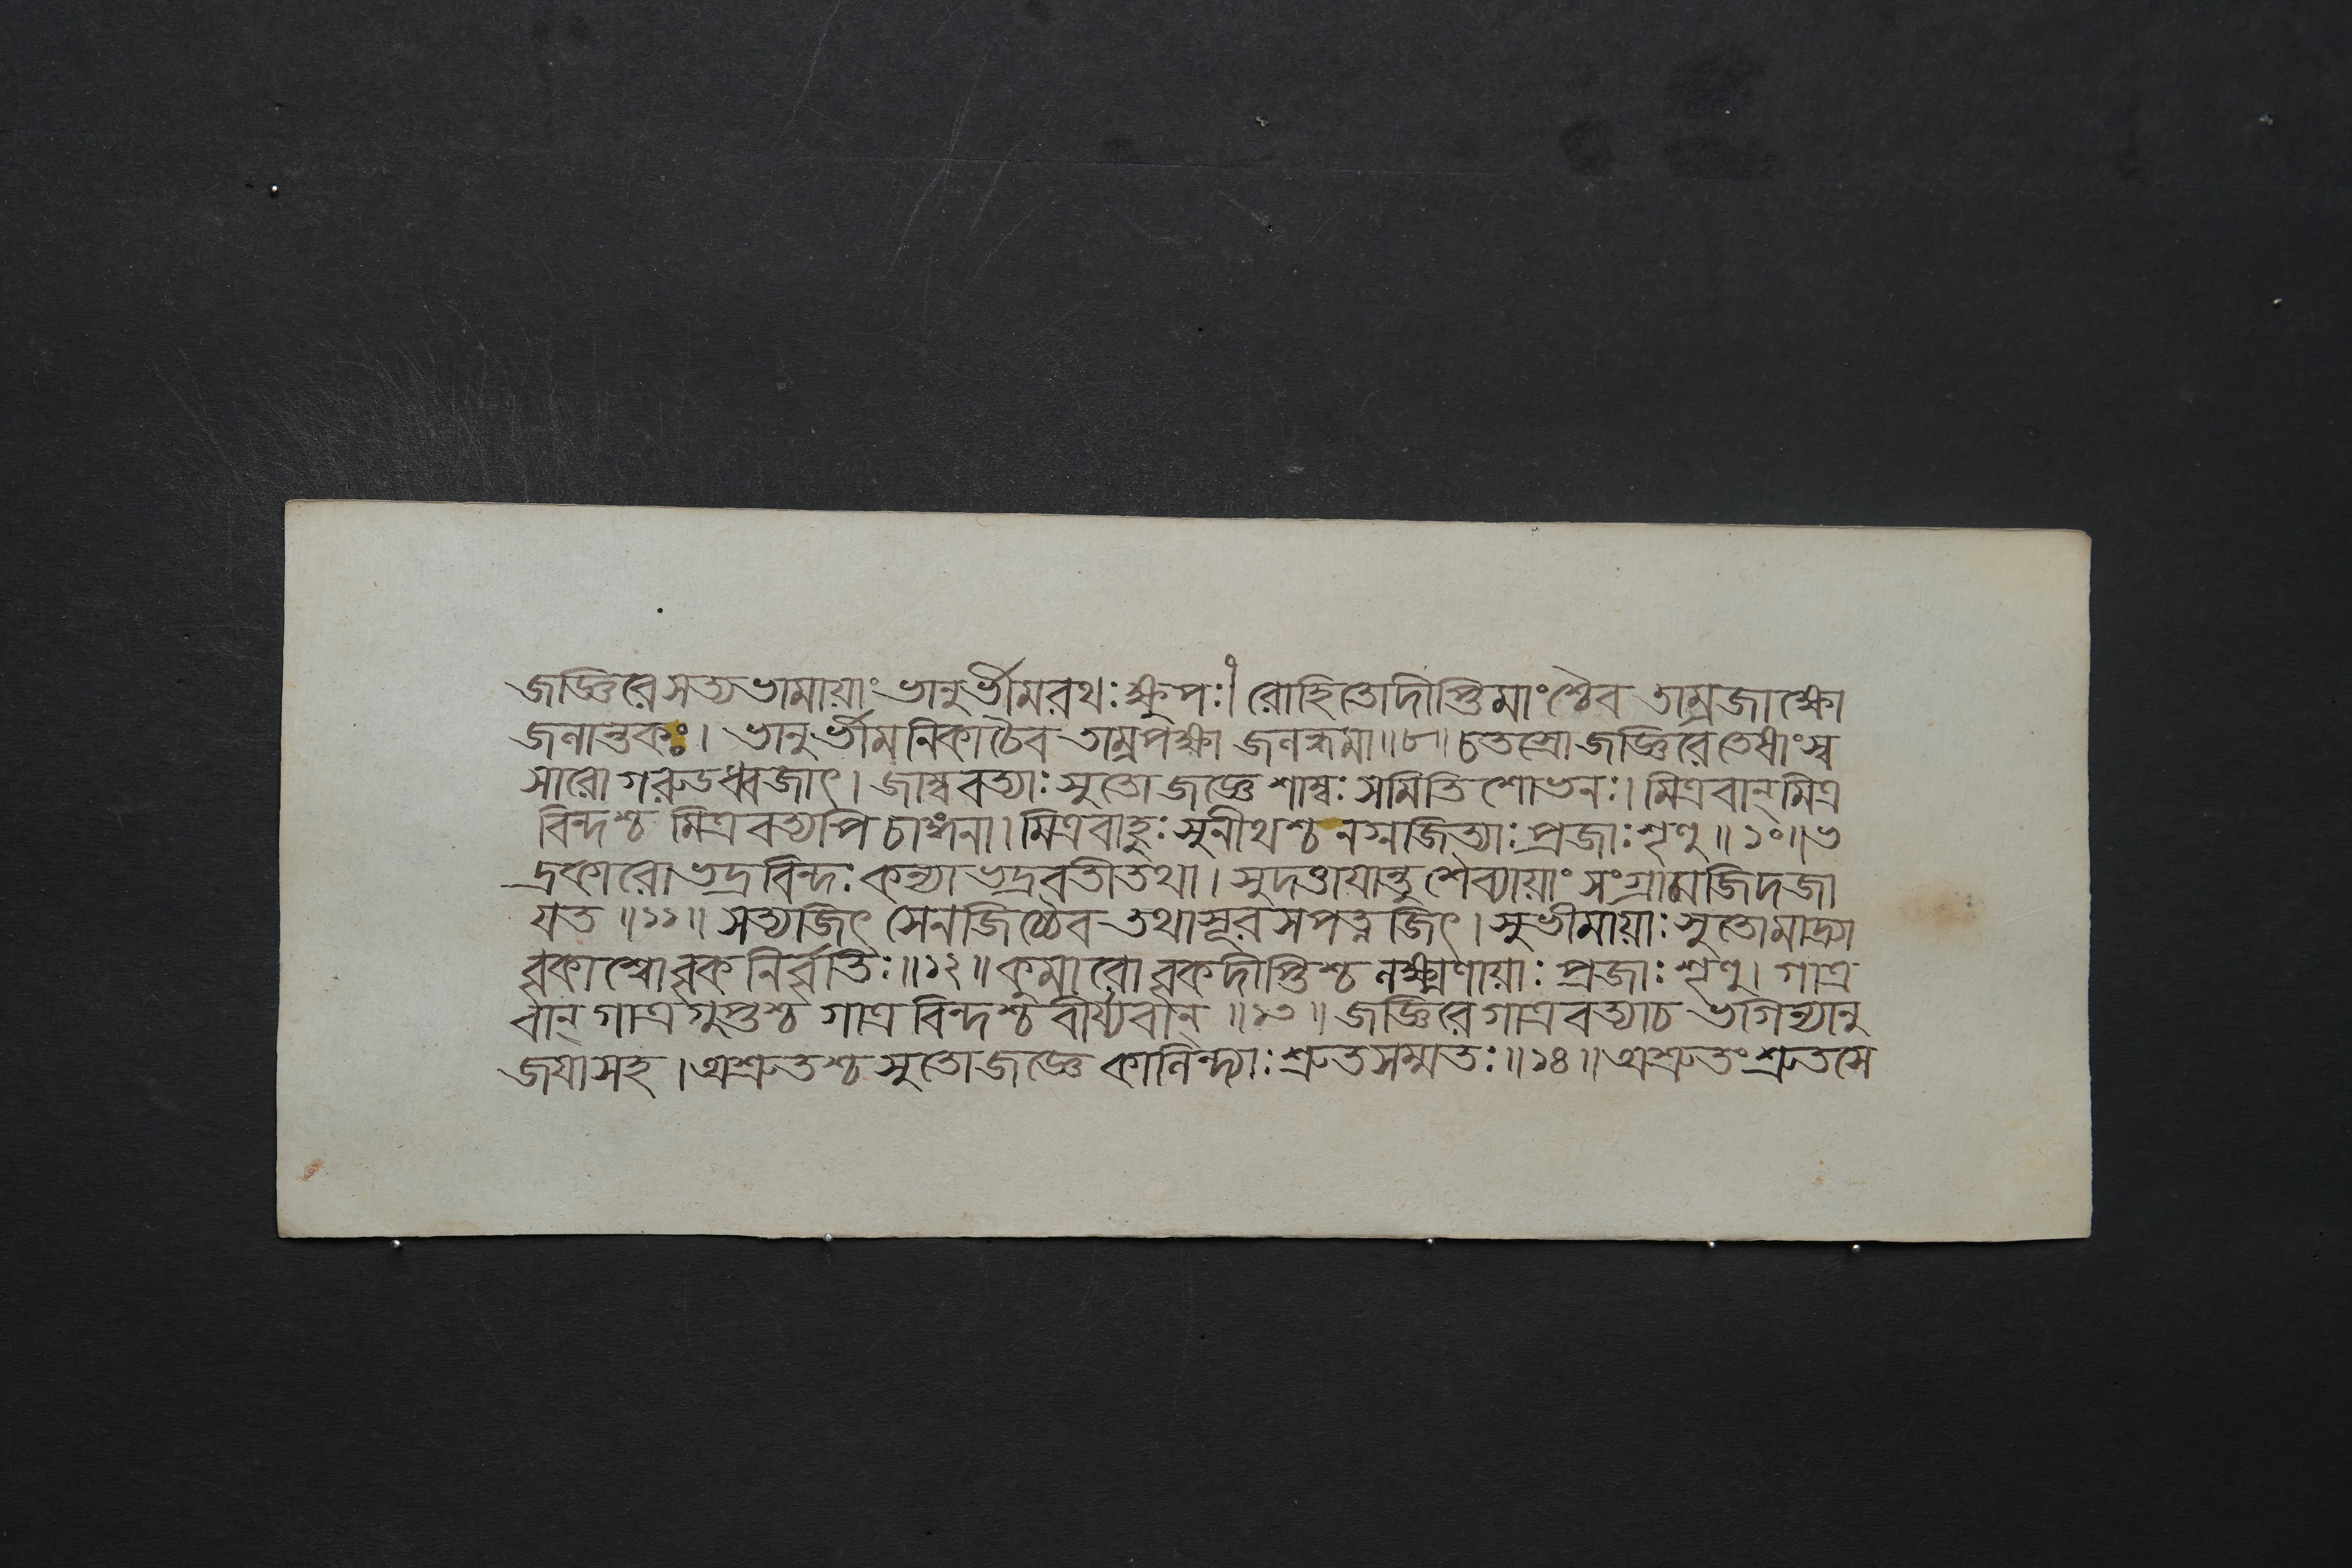 জজ্ঞিরে সত্যভামায়াং ভানুর্ভীমরথঃ ক্ষুপঃ। রোহিতো দীপ্তিমাংশ্চৈব তাম্রজাক্ষো
জনান্তকঃ। ভানুর্ভীমনিকা চৈব তাম্রপক্ষা জনন্ধমা॥৮॥ চতস্রো জজ্ঞিরে তেষাং স্ব
সারো গরুডধ্বজাৎ। জাম্ববত্যাঃ সুতো জজ্ঞে শাম্বঃ সমিতিশোভনঃ। মিত্রবান্ মিত্র
বিন্দশ্চ মিত্রবত্যপি চাঙ্গনা। মিত্রবাহুঃ সুনীথশ্চ নগ্নজিত্যাঃ প্রজাঃ শৃণু॥১০॥ ভ
দ্রকারো ভদ্রবিন্দঃ কন্যা ভদ্রবতী তথা। সুদত্তায়ান্তু শৈব্যায়াং সংগ্রামজিদজা
যত॥১১॥ সত্যজিৎ সেনজিচ্চৈব তথা সূর সপত্নজিৎ। সুভীমায়াঃ সুতো মাদ্র্যা
বৃকাশ্বো বৃকনির্বৃতিঃ॥১২॥ কুমারো বৃকদীপ্তিশ্চ লক্ষ্মণায়াঃ প্রজাঃ শৃণু। গাত্র
বান্ গাত্রগুপ্তশ্চ গাত্রবিন্দশ্চ বীর্য্যবান্॥১৩॥ জজ্ঞিরে গাত্রবত্যাচ ভগিন্যানু
জযা সহ। অশ্রুতশ্চ সুতো জজ্ঞে কালিন্দ্যাঃ শ্রুতসম্মতঃ॥১৪॥ অশ্রুতং শ্রুতসে